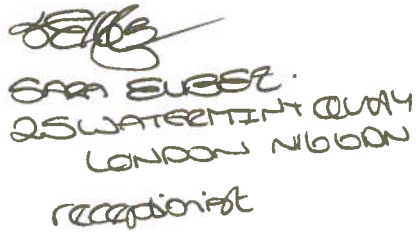 SARA
25 WATERMINT QUAY
LONDON N16 6DN
receptionist